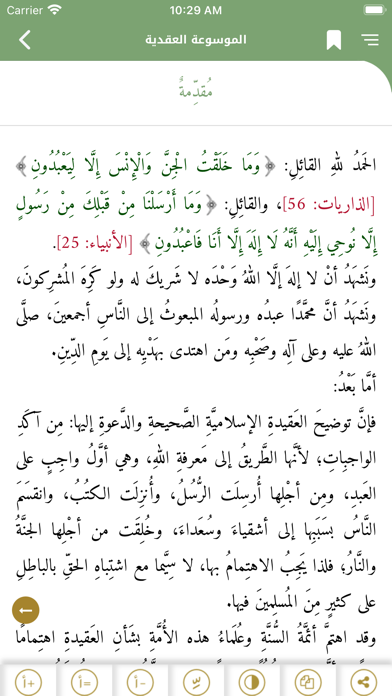 Carrier 10:29 AM
الموسوعة العقدية
مُقدِّمةٌ
الحَمدُ للهِ القائِلِ: ﴿وَمَا خَلَقْتُ الْجِنَّ وَالْإِنْسَ إِلَّا لِيَعْبُدُونِ﴾
[الذاريات: 56]، والقائِلِ: ﴿وَمَا أَرْسَلْنَا مِنْ قَبْلِكَ مِنْ رَسُولٍ
إِلَّا نُوحِي إِلَيْهِ أَنَّهُ لَا إِلَهَ إِلَّا أَنَا فَاعْبُدُونِ﴾ [الأنبياء: 25].
ونَشهَدُ أنْ لا إلهَ إلَّا اللهُ وَحْدَه لا شَريكَ له ولو كَرِهَ المُشرِكونَ،
ونَشهَدُ أنَّ محمَّدًا عبدُه ورسولُه المبعوثُ إلى النَّاسِ أجمعينَ، صلَّى
اللهُ عليه وعلى آلِه وصَحْبِه ومَن اهتدى بهَدْيِه إلى يَومِ الدِّينِ.
أمَّا بَعْدُ:
فإنَّ توضيحَ العَقيدةِ الإسلاميَّةِ الصَّحيحةِ والدَّعوةِ إليها: مِن آكَدِ
الواجِباتِ؛ لأنَّها الطَّريقُ إلى مَعرِفةِ اللهِ، وهي أوَّلُ واجِبٍ على
العَبدِ، ومِن أجْلِها أُرسِلَت الرُّسُلُ، وأُنزِلَت الكتُبُ، وانقسَمَ
النَّاسُ بسَبَبِها إلى أشقياءَ وسُعَداءَ، وخُلِقَت من أجْلِها الجنَّةُ
والنَّارُ؛ فلذا يَجِبُ الاهتِمامُ بها، لا سِيَّما مع اشتِباهِ الحَقِّ بالباطِلِ
على كثيرٍ مِنَ المُسلِمينَ فيها.
وقد اهتَمَّ أئمَّةُ السُّنَّةِ وعُلَماءُ هذه الأُمَّةِ بشَأنِ العَقيدةِ اهتِمامًا
+أ =أ -أ